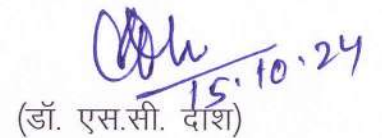 15.10.24
(डॉ. एस.सी. दाश)